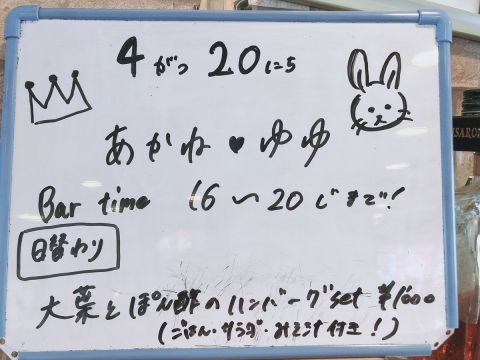 4がつ20にち
あかね♥ゆゆ
Bar time 16〜20じまで!
日替わり
大葉とぽん酢のハンバーグset ¥1000
(ごはん・サラダ・みそ汁付き!)